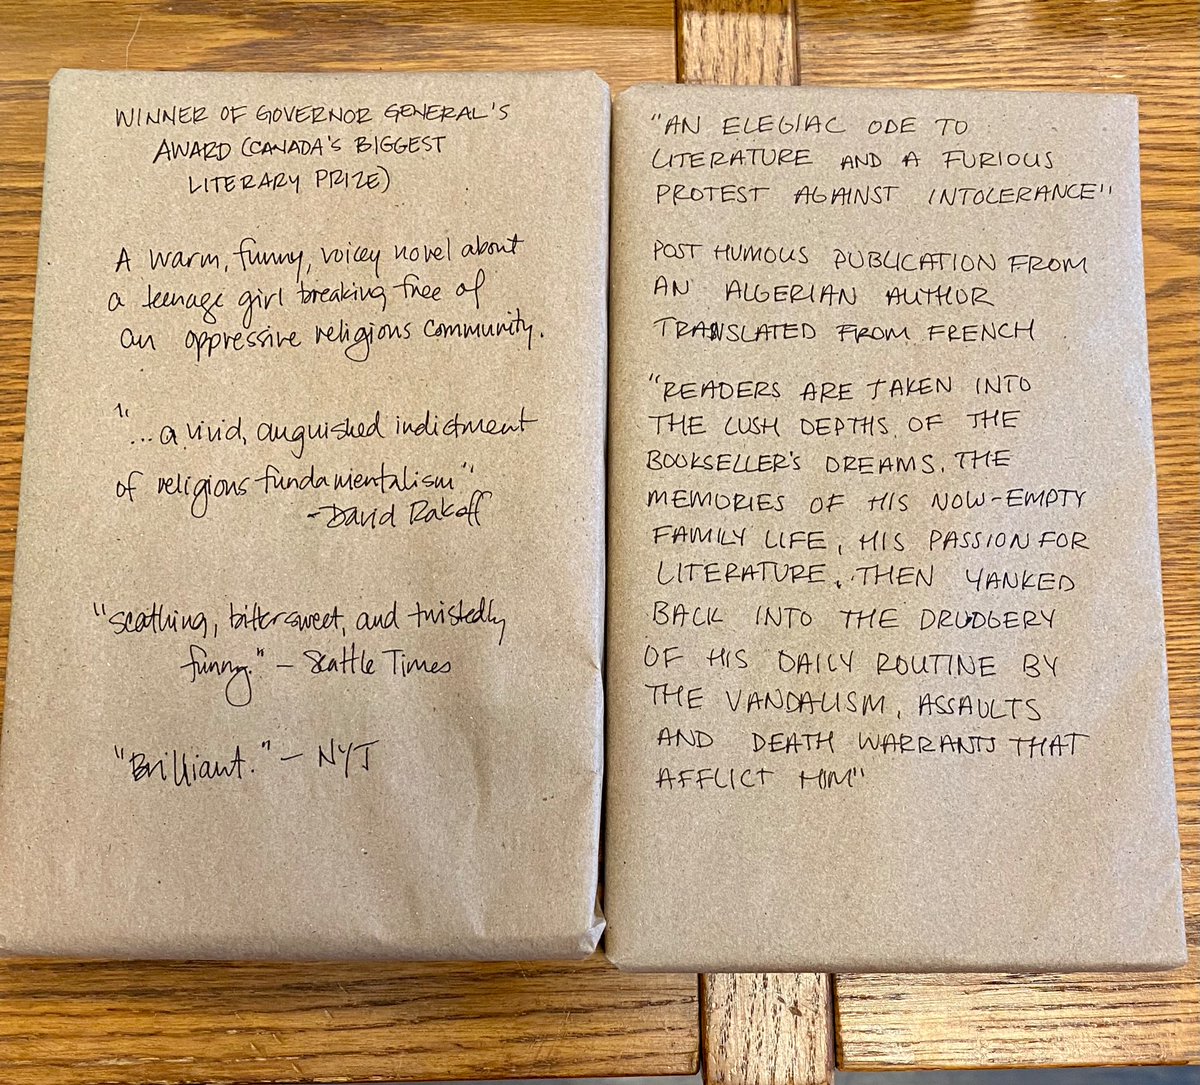 WINNER OF GOVERNOR GENERAL'S
AWARD (CANADA'S BIGGEST
LITERARY PRIZE)
A warm, funny, voicey novel about
a teenage girl breaking free of
an oppressive religious community.
"...a vivid, anguished indictment
of religious fundamentalism"
-David Rakoff
"scathing, bittersweet, and twistedly
funny." - Seattle Times
"Brilliant." - NYT
"AN ELEGIAC ODE TO
LITERATURE AND A FURIOUS
PROTEST AGAINST INTOLERANCE"
POST HUMOUS PUBLICATION FROM
AN ALGERIAN AUTHOR
TRANSLATED FROM FRENCH
"READERS ARE TAKEN INTO
THE LUSH DEPTHS OF THE
BOOKSELLER'S DREAMS, THE
MEMORIES OF HIS NOW-EMPTY
FAMILY LIFE, HIS PASSION FOR
LITERATURE, THEN YANKED
BACK INTO THE DRUDGERY
OF HIS DAILY ROUTINE BY
THE VANDALISM, ASSAULTS
AND DEATH WARRANTS THAT
AFFLICT HIM"